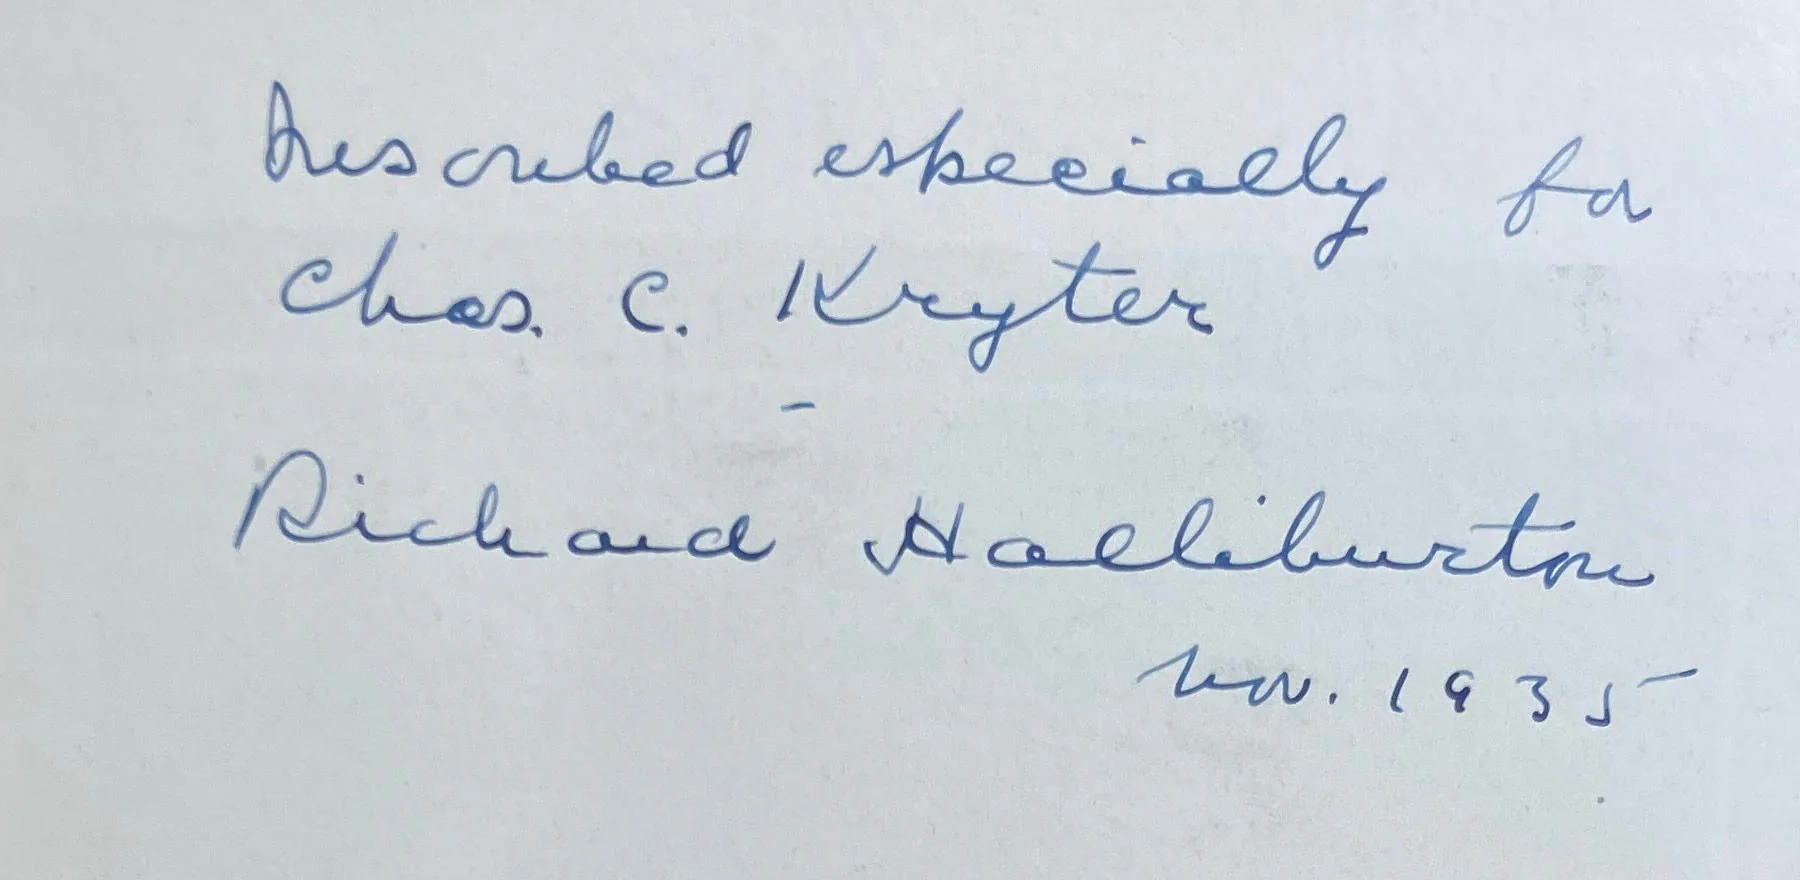 Inscribed especially for
Chas. C. Kryter
-
Richard Halliburton
Nov. 1935